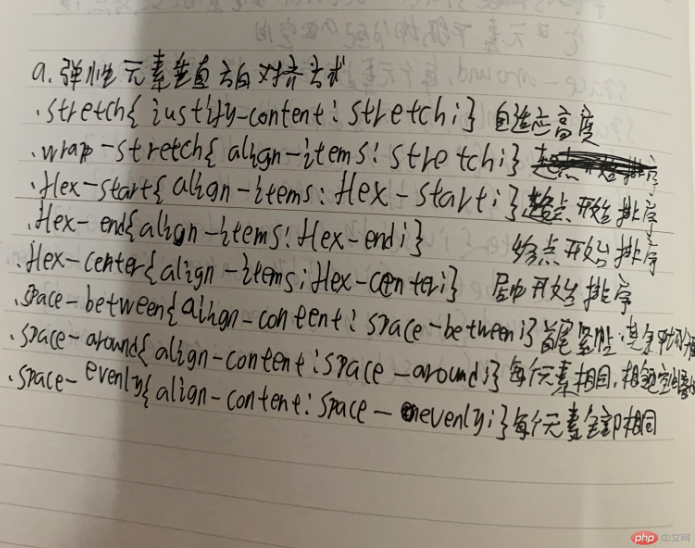 a. 弹性元素垂直方向对齐方式
.stretch{ justify-content: stretch;} 自适应高度
.wrap-stretch{ align-items: stretch;}
.flex-start{ align-items: flex-start;} 起点开始排序
.flex-end{ align-items: flex-end;} 终点开始排序
.flex-center{ align-items: flex-center;} 居中开始排序
.space-between{ align-content: space-between;} 首尾紧贴,其余平均分
.space-around{ align-content: space-around;} 每个元素相同,相邻
.space-evenly{ align-content: space-evenly;} 每个元素全部相同
php 中文网